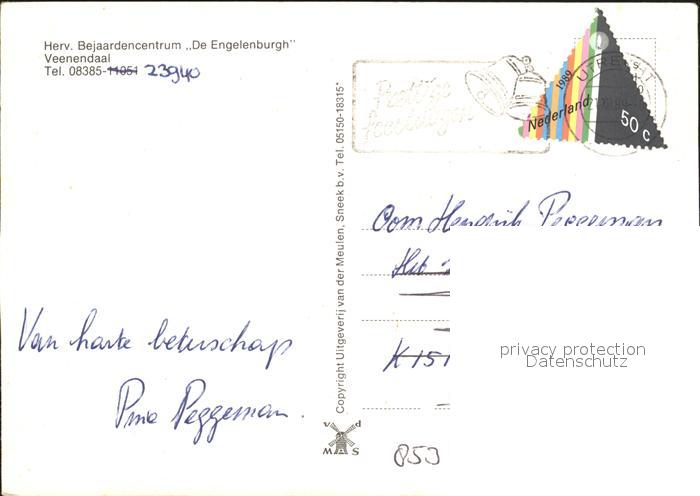 Herv. Bejaardencentrum „De Engelenburgh"
Veenendaal
Tel. 08385-11051 23940
Prettige
feestdagen
UTRECHT
1989
Nederland
50 c
Copyright Uitgeverij van der Meulen, Sneek b.v. Tel. 05150-18315*
Oom Hendrik Peggeman
Het
K 151
privacy protection
Datenschutz
Van harte beterschap
Peggeman.
v d
M S
853